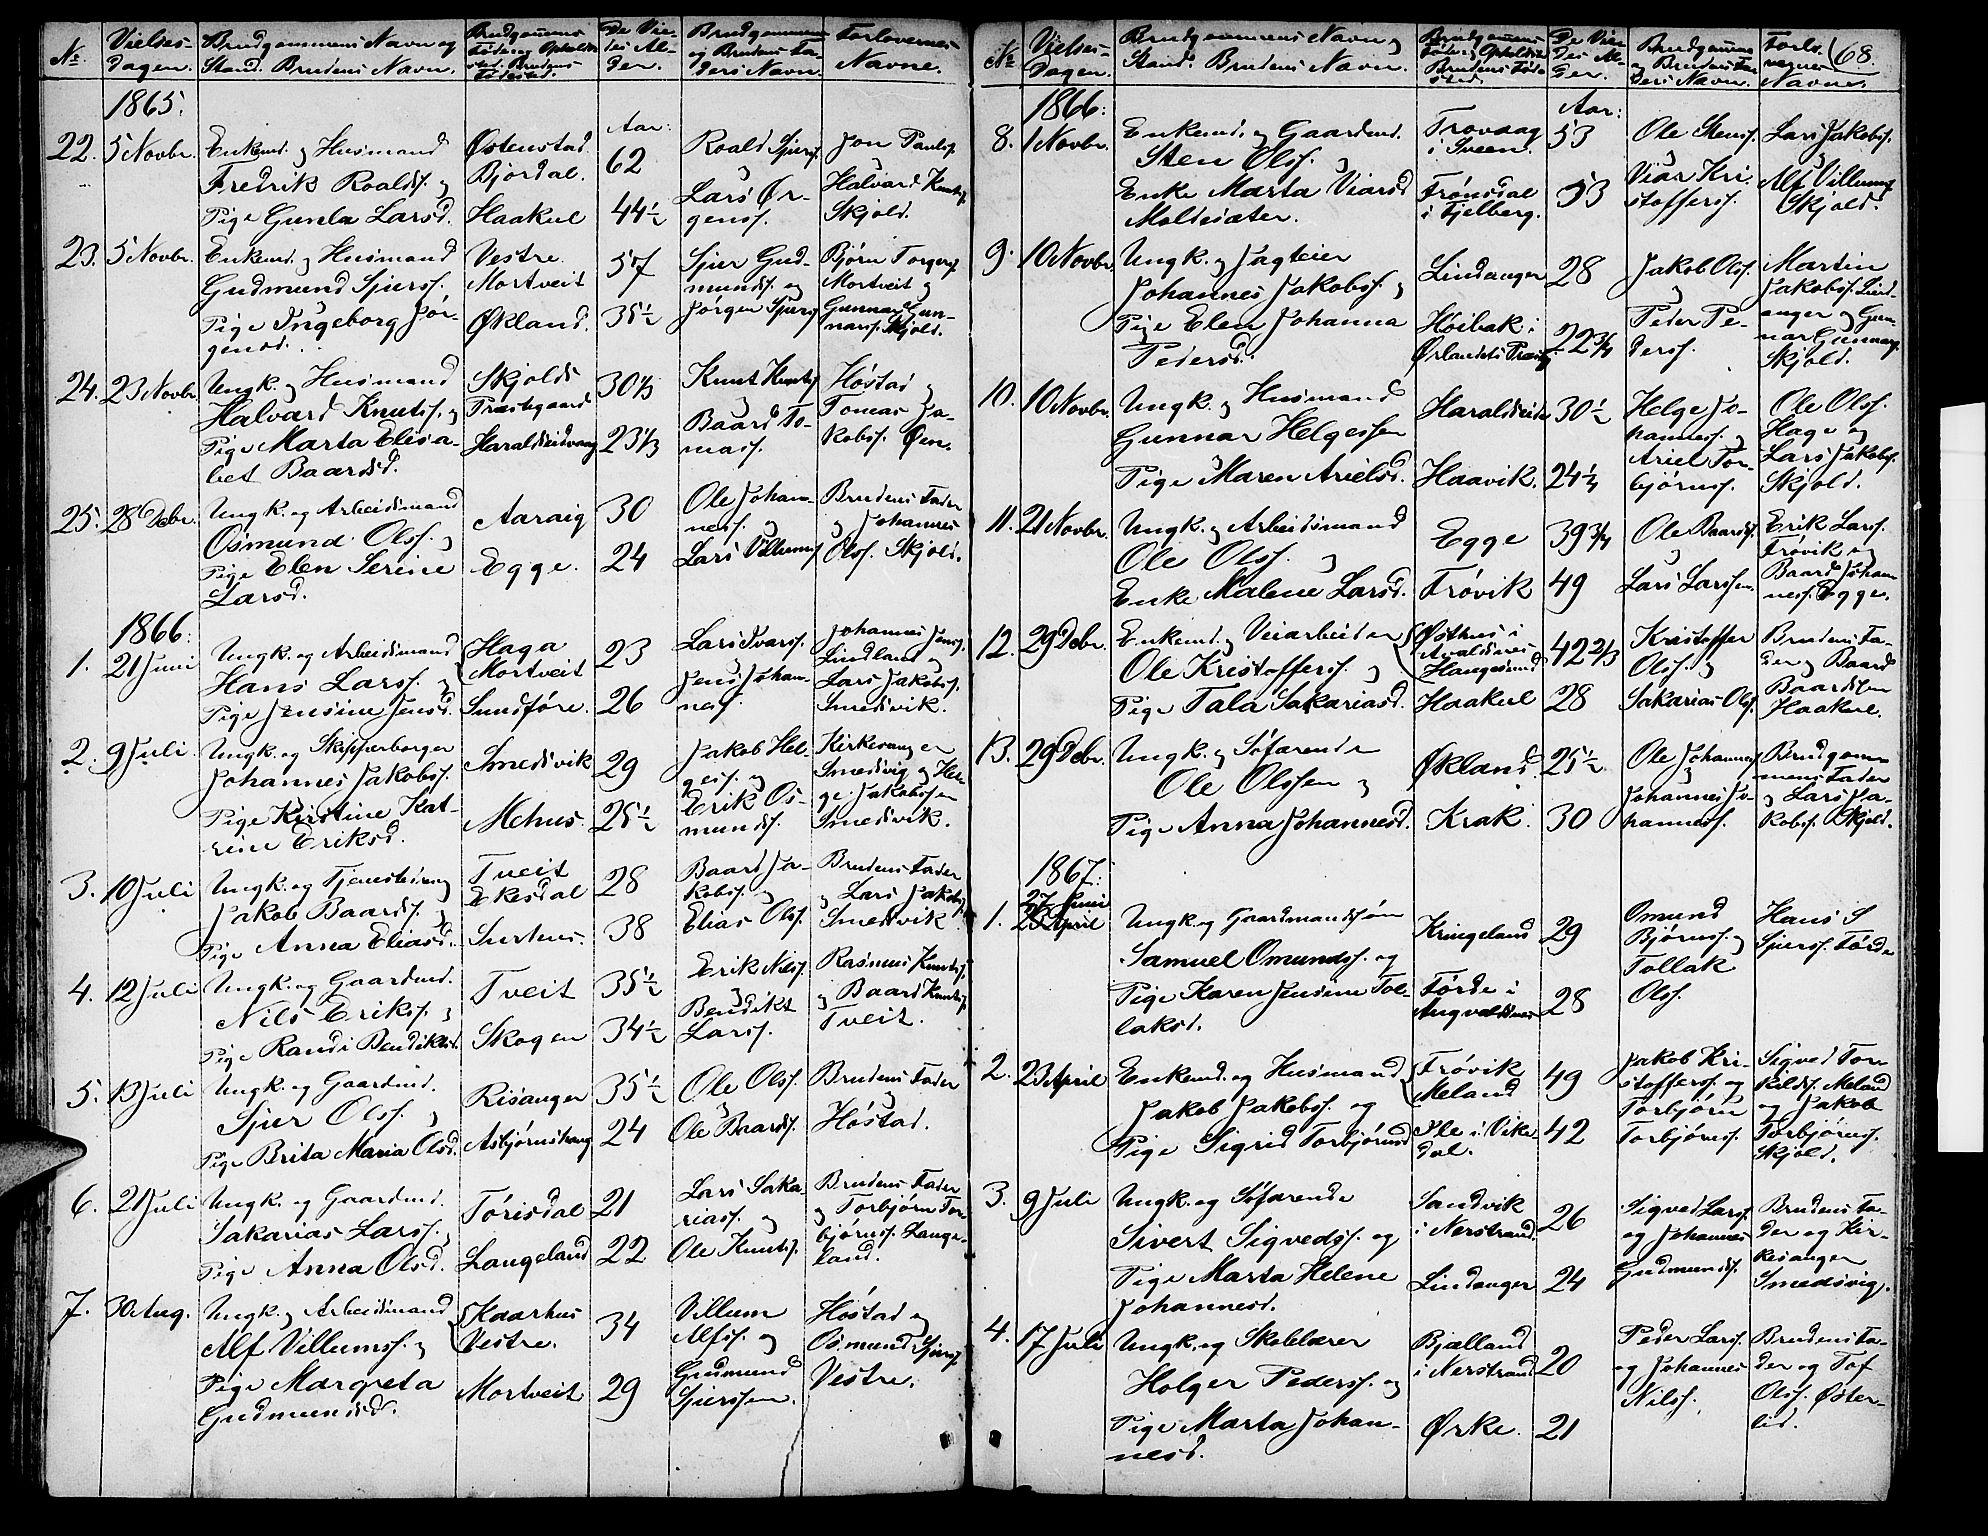 No.
Vielses-
dagen.
Brudgommens Navn og
Stand. Brudens Navn.
Brudgommens
Føde og Opholds
sted. Brudens
Fødested.
De Vie-
des Al-
der.
Brudgommens
og Brudens Fa-
ders Navn.
Forlovernes
Navne.
1865:
Aar:
22. 5 Novbr.
Enkemd. og Husmand
Fredrik Roaldss. og
Pige Gunla Larsd.
Østenstad
Bjordal.
Haakul
62
44½
Roald Sjurss.
Lars Ør-
genss.
Jon Paulss.
Halvard Knutss.
Skjold.
23. 5 Novbr.
Enkemd. og Husmand
Gudmund Sjurss.
Pige Ingeborg Jør-
gensd.
Vestre
Mortveit
Økland.
57
35½
Sjur Gud-
mundss. og
Jørgen Sjurss.
Bjørn Torgerss.
Mortveit og
Gunnar Gun-
narss. Skjold.
24. 23 Novbr.
Ungk. og Husmand
Halvard Knutss. og
Pige Marta Elisa-
bet Baardsd.
Skjolds
Præstegaard
Haraldseidvaag
30⅓
23⅓
Knut Knutss.
Baard To-
mass.
Høstad og
Tomas Ja-
kobss. Øen.
25. 28 Debr.
Ungk. og Arbeidsmand
Osmund Olss. og
Pige Elen Serine
Larsd.
Aaraig
Egge.
30
24
Ole Johan-
ness. og
Lars Villumss.
Brudens Fader
og Johannes
Olss. Skjold.
1866:
1. 21 Juni
Ungk. og Arbeidsmand
Hans Larss. og
Pige Jensine Jensd.
Haga
Mortveit
Sundføre.
23
26
Lars Ivarss.
Jens Johan-
ness.
Johannes Jenss.
Lindland og
Lars Jakobss.
Smedsvik.
2. 9 Juli
Ungk. og Skipperborger
Johannes Jakobss.
Pige Kirstine Kat-
rine Eriksd.
Smedsvik
Mehus
29
25½
Jakob Hel-
gess. og
Erik Os-
mundss.
Kirkesanger
Smedsvig og Hel-
ge Jakobssen
Smedsvik.
3. 10 Juli
Ungk. og Tjenestedreng
Jakob Baardss. og
Pige Anna Eliasd.
Tveit
Ekesdal
Surhus.
28
38
Baard Ja-
kobss. og
Elias Olss.
Brudens Fader
og Lars Jakobss.
Smedsvik
4. 12 Juli
Ungk. og Gaardmd.
Nils Erikss. og
Pige Randi Bendiktsd.
Tveit
Skogen
35½
34½
Erik Nilss.
og
Bendikt
Larss.
Rasmus Knutss.
og Baard Knutss.
Tveit.
5. 13 Juli
Ungk. og Gaardmd.
Sjur Olss. og
Pige Brita Maria Olsd.
Risanger
Asbjørnshaug
35½
24
Ole Olss.
og
Ole Baardss.
Brudens Fader
og
Høstad.
6. 21 Juli
Ungk. og Gaardmd.
Sakarias Larss.
Pige Anna Olsd.
Torisdal
Langeland
21
22
Lars Saka-
riass. og
Ole Knutss.
Brudens Fader
og Torbjørn Tor-
bjørnss. Lange-
land.
7. 30 Aug.
Ungk. og Arbeidsmand
Alf Villumss. og
Pige Margreta
Gudmundsd.
Kaarhus
Vestre.
Mortveit
34
29
Villum
Alfss. og
Gudmund
Sjurssen.
Høstad og
Osmund Sjurss.
Vestre.
No
Vielses-
Dagen.
Brudgommens Navn og
Stand. Brudens Navn.
Brudgommens
Føde og Opholdssted
Brudens Føde
sted.
De Vie-
des Al-
der.
Brudgommens
og Brudens Fa-
ders Navn.
Forlo-
vernes
Navne.
68.
1866:
Aar:
8. 1 Novbr.
Enkemd. og Gaardmd.
Sten Olss. og
Enke Marta Viarsd
Moldesæter.
Trovaag
i Sveen.
Frønsdal
i Fjelberg.
53
53
Ole Stenss.
Viar Kri-
stofferss.
Lars Jakobss.
Alf Villumss.
Skjold.
9. 10 Novbr.
Ungk. og Jagteier
Johannes Jakobss. og
Pige Elen Johanna
Pedersd.
Lindanger
Høibak i
Ørlandets Præstg.
28
22¾
Jakob Olss.
og
Peder Pe-
derss.
Martin
Jakobss. Lind-
anger og Gun-
nar Gunnarss.
Skjold.
10. 10 Novbr.
Ungk. og Husmand
Gunnar Helgessen
Pige Maren Arielsd.
Haraldseide
Haavik.
30½
24½
Helge Jo-
hanness. og
Ariel Tor-
bjørnss.
Ole Olss.
Hage og
Lars Jakobss.
Skjold.
11. 21 Novbr.
Ungk. og Arbeidsmand
Ole Olss. og
Enke Malene Larsd.
Egge
Frøvik
39¾
49
Ole Baardss.
og
Lars Larssen.
Erik Larss.
Frøvik og
Baard Johan-
ness. Egge.
12. 29 Debr.
Enkemd. og Veiarbeider
Ole Kristofferss. og
Pige Tala Sakariasd.
Østhus i
Avaldsnes
Haugesund
Haakul
42⅔
28
Kristoffer
Olss. og
Sakarias Olss.
Brudens Fa-
der og Baard
Baardssen
Haakul.
13. 29 Debr.
Ungk. og Søfarende
Ole Olssen og
Pige Anna Johannesd.
Økland.
Krak.
25½
30
Ole Johanness.
og
Johannes Jo-
hanness.
Brudgom-
mens Fader
og Lars Ja-
kobss. Skjold.
1867:
27 Juni
1.
Ungk. og Gaardmandssøn
Samuel Omundss. og
Pige Karen Jensine Tol-
laksd.
Kringeland
Førde i
Augvaldsnes
29
28
Omund
Bjørnss. og
Tollak
Olss.
Hans S
Sjurss. Førde
2. 23 April
Enkemd. og Husmand
Jakob Jakobss. og
Pige Sigrid Torbjørnsd
Frøvik
Meland
Ile i Vike-
dal.
49
42
Jakob Kri-
stofferss. og
Torbjørn
Torbjørnss.
Sigved Tor-
kildss. Meland
og Jakob
Torbjørnss.
Skjold.
3. 9 Juli
Ungk. og Søfarende
Sivert Sigvedss. og
Pige Marta Helene
Johannesd.
Sandvik
i Nerstrand
Lindanger
26
24
Sigved Larss.
og Johannes
Gudmundss.
Brudens Fa-
der og Kir-
kesanger
Smedsvig.
4. 17 Juli
Ungk. og Skolelærer
Holger Pederss. og
Pige Marta Johan-
nesd.
Bjælland
i Nerstrand
Ørke.
20
21
Peder Larss.
og Johannes
Nilss.
Brudens Fa-
der og Tof
Olss. Øster-
lid.